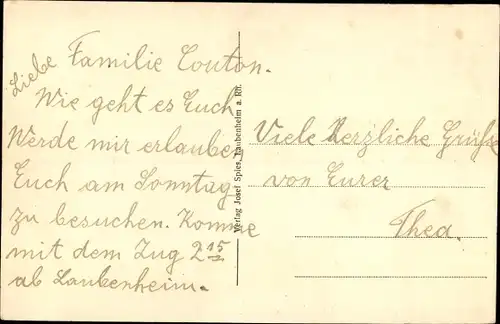 Liebe Familie Couton.
Wie geht es Euch
Werde mir erlauben
Euch am Sonntag
zu besuchen. Komme
mit dem Zug 2 15
ab Laubenheim.
Verlag Josef Spies, Laubenheim a. Rh.
Viele Herzliche Grüße
von Eurer
Thea.